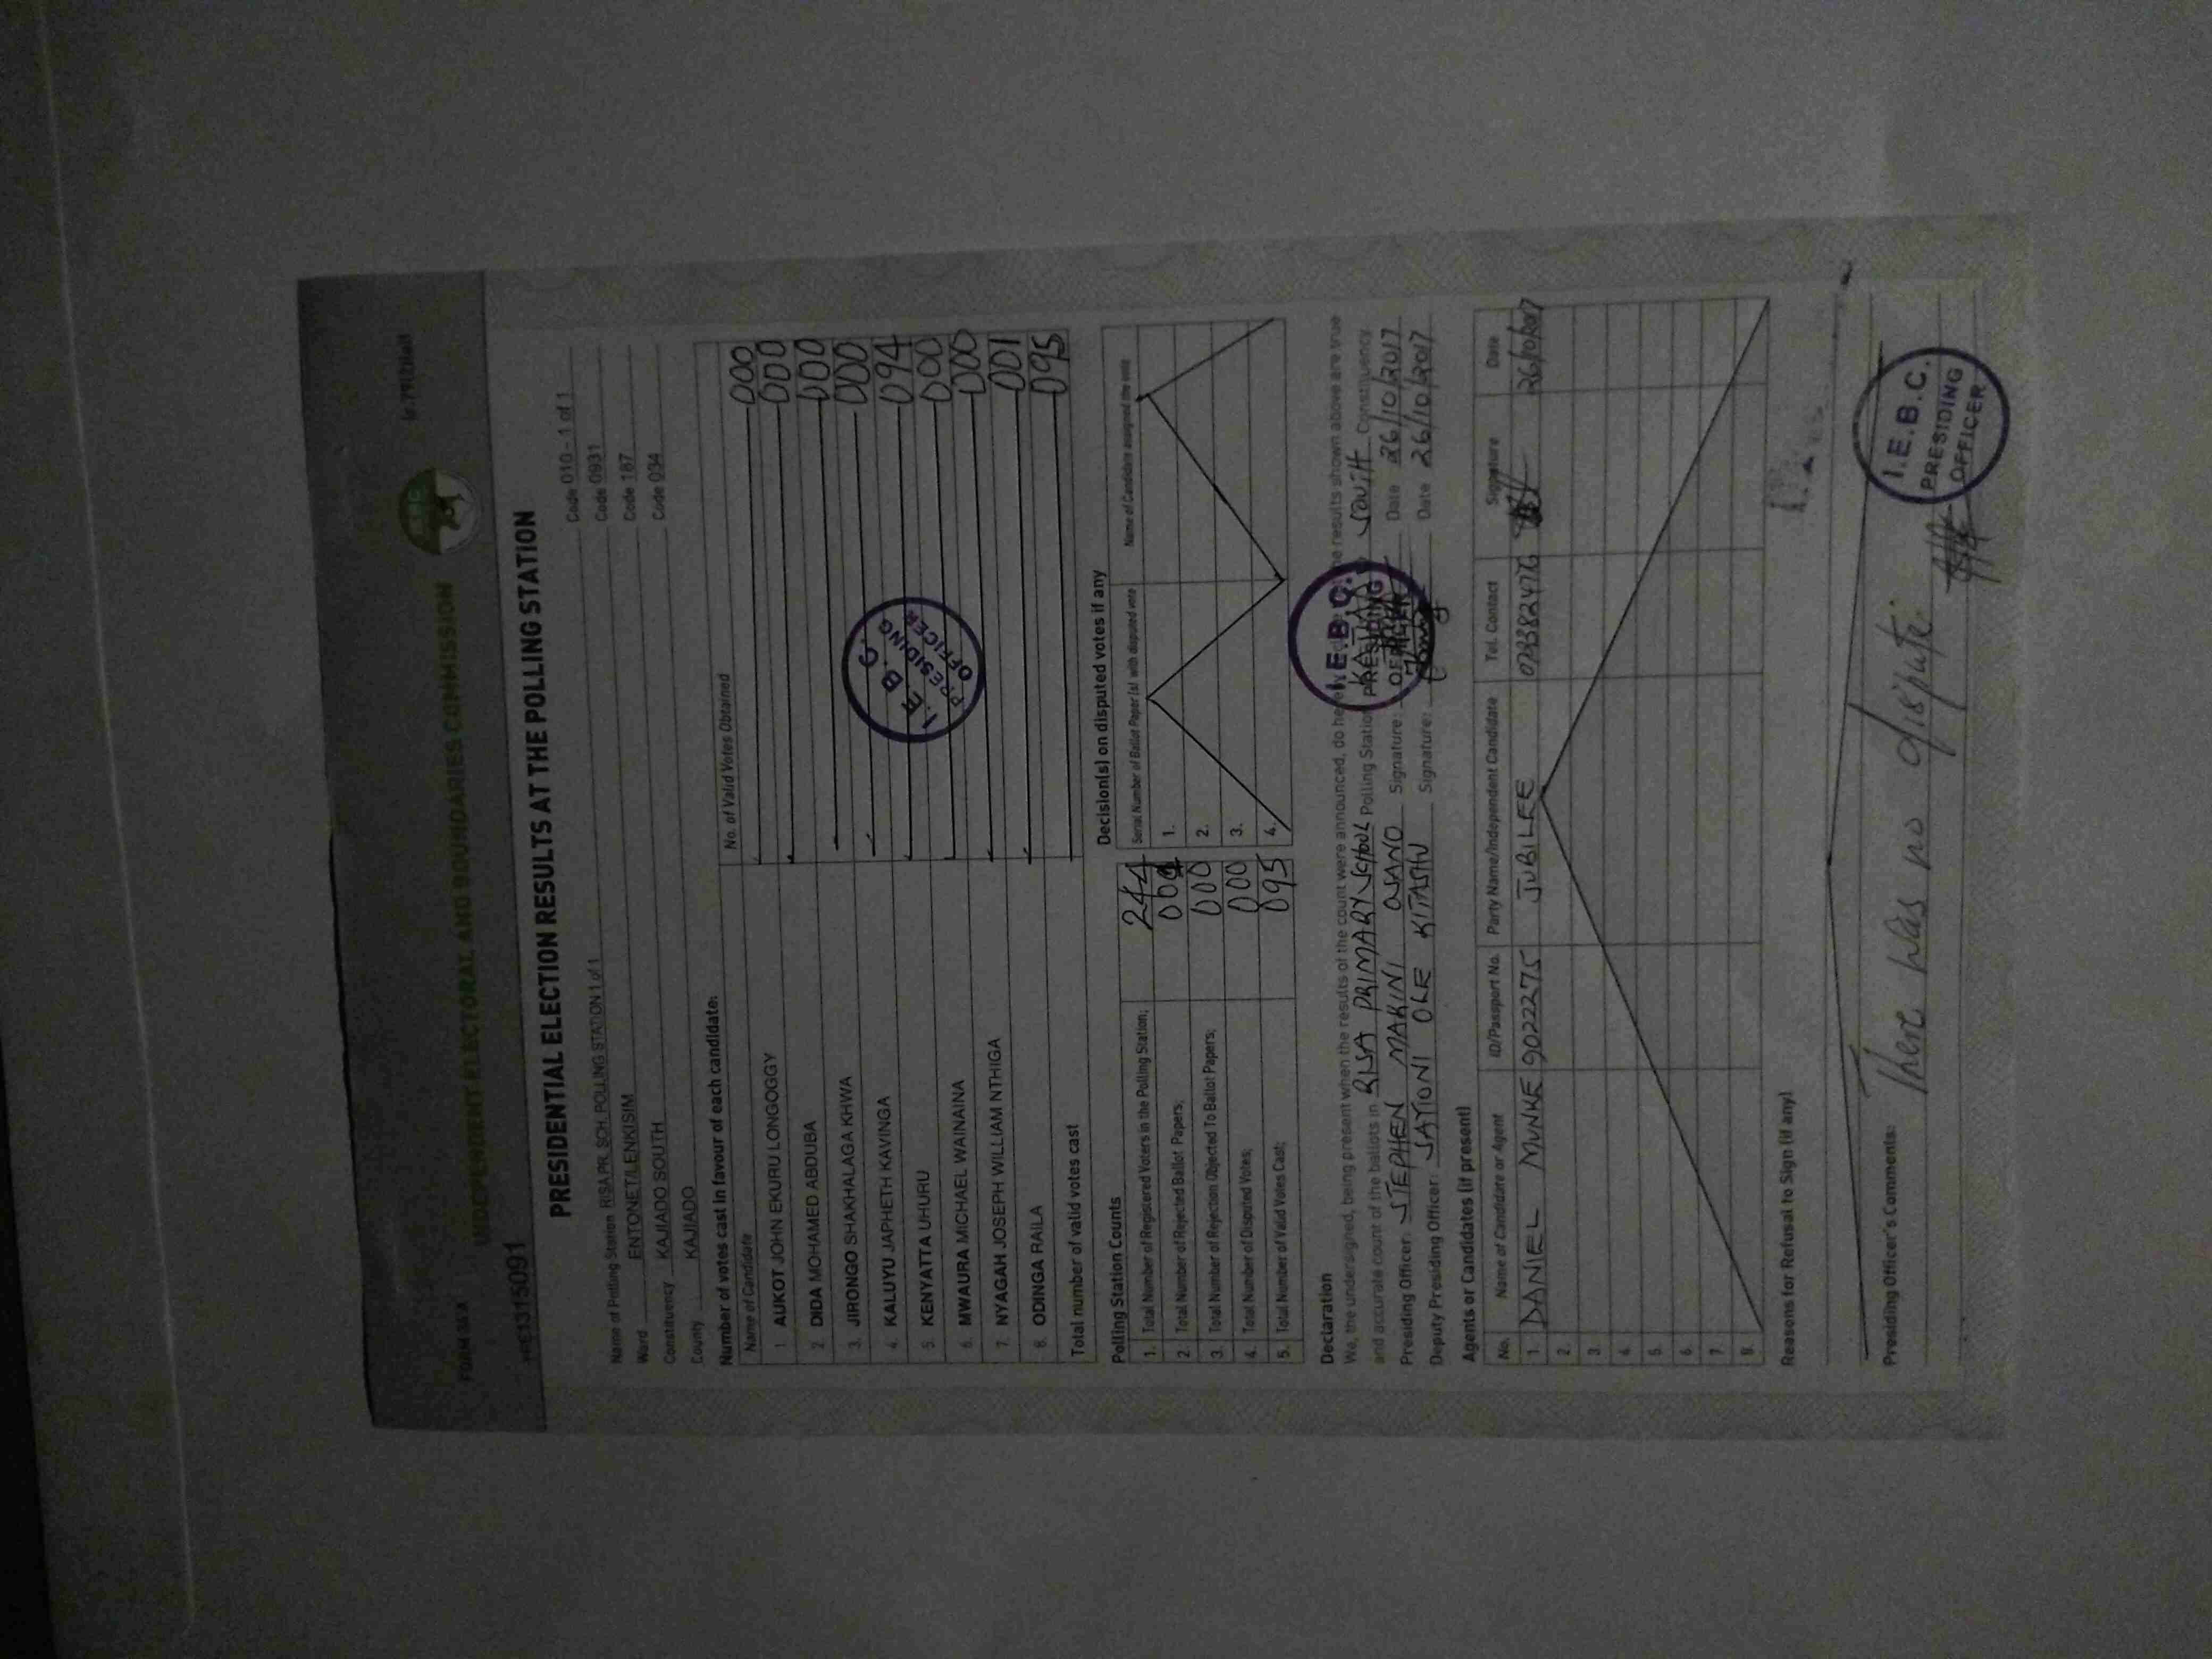 FORM 34A
INDEPENDENT ELECTORAL AND BOUNDARIES COMMISSION
PRESIDENTIAL ELECTION RESULTS AT THE POLLING STATION
Name of Polling Station RISA PR. SCH. POLLING STATION 1 of 1 Code 010 - 1 of 1
Ward ENTONET/LENKISIM Code 0931
Constituency KAJIADO SOUTH Code 187
County KAJIADO Code 034
Number of votes cast in favour of each candidate:
Name of Candidate No. of Valid Votes Obtained
1 AUKOT JOHN EKURU LONGOGGY 000
2 DIDA MOHAMED ABDUBA 000
3. JIRONGO SHAKHALAGA KHWA 000
4. KALUYU JAPHETH KAVINGA 000
5 KENYATTA UHURU 094
6. MWAURA MICHAEL WAINAINA 000
7. NYAGAH JOSEPH WILLIAM NTHIGA 000
8. ODINGA RAILA 001
Total number of valid votes cast 095
I.E.B.C.
PRESIDING
OFFICER
Polling Station Counts
1. Total Number of Registered Voters in the Polling Station; 244
2. Total Number of Rejected Ballot Papers;
3. Total Number of Rejection Objected To Ballot Papers; 000
4. Total Number of Disputed Votes; 000
5. Total Number of Valid Votes Cast; 095
Decision(s) on disputed votes if any
Serial Number of Ballot Paper (s) with disputed vote Name of Candidate assigned the vote
1.
2.
3.
4.
Declaration
We, the undersigned, being present when the results of the count were announced, do he results shown above are true
and accurate count of the ballots in RISA PRIMARY SCHOOL Polling Station SOUTH Constituency
Presiding Officer: STEPHEN MAKINI OSANO Signature: Date 26/10/2017
Deputy Presiding Officer: SATIONI OLE KITASHU Signature: Date 26/10/2017
I.E.B.C.
PRESIDING
OFFICER
Agents or Candidates (if present)
No. Name of Candidate or Agent ID/Passport No. Party Name/Independent Candidate Tel. Contact Signature Date
1. DANIEL MUNKE 9022275 JUBILEE 26/10/2017
2.
3.
4.
5.
6
7.
8.
Reasons for Refusal to Sign (if any)
Presiding Officer's Comments:
There was no dispute.
I.E.B.C.
PRESIDING
OFFICER